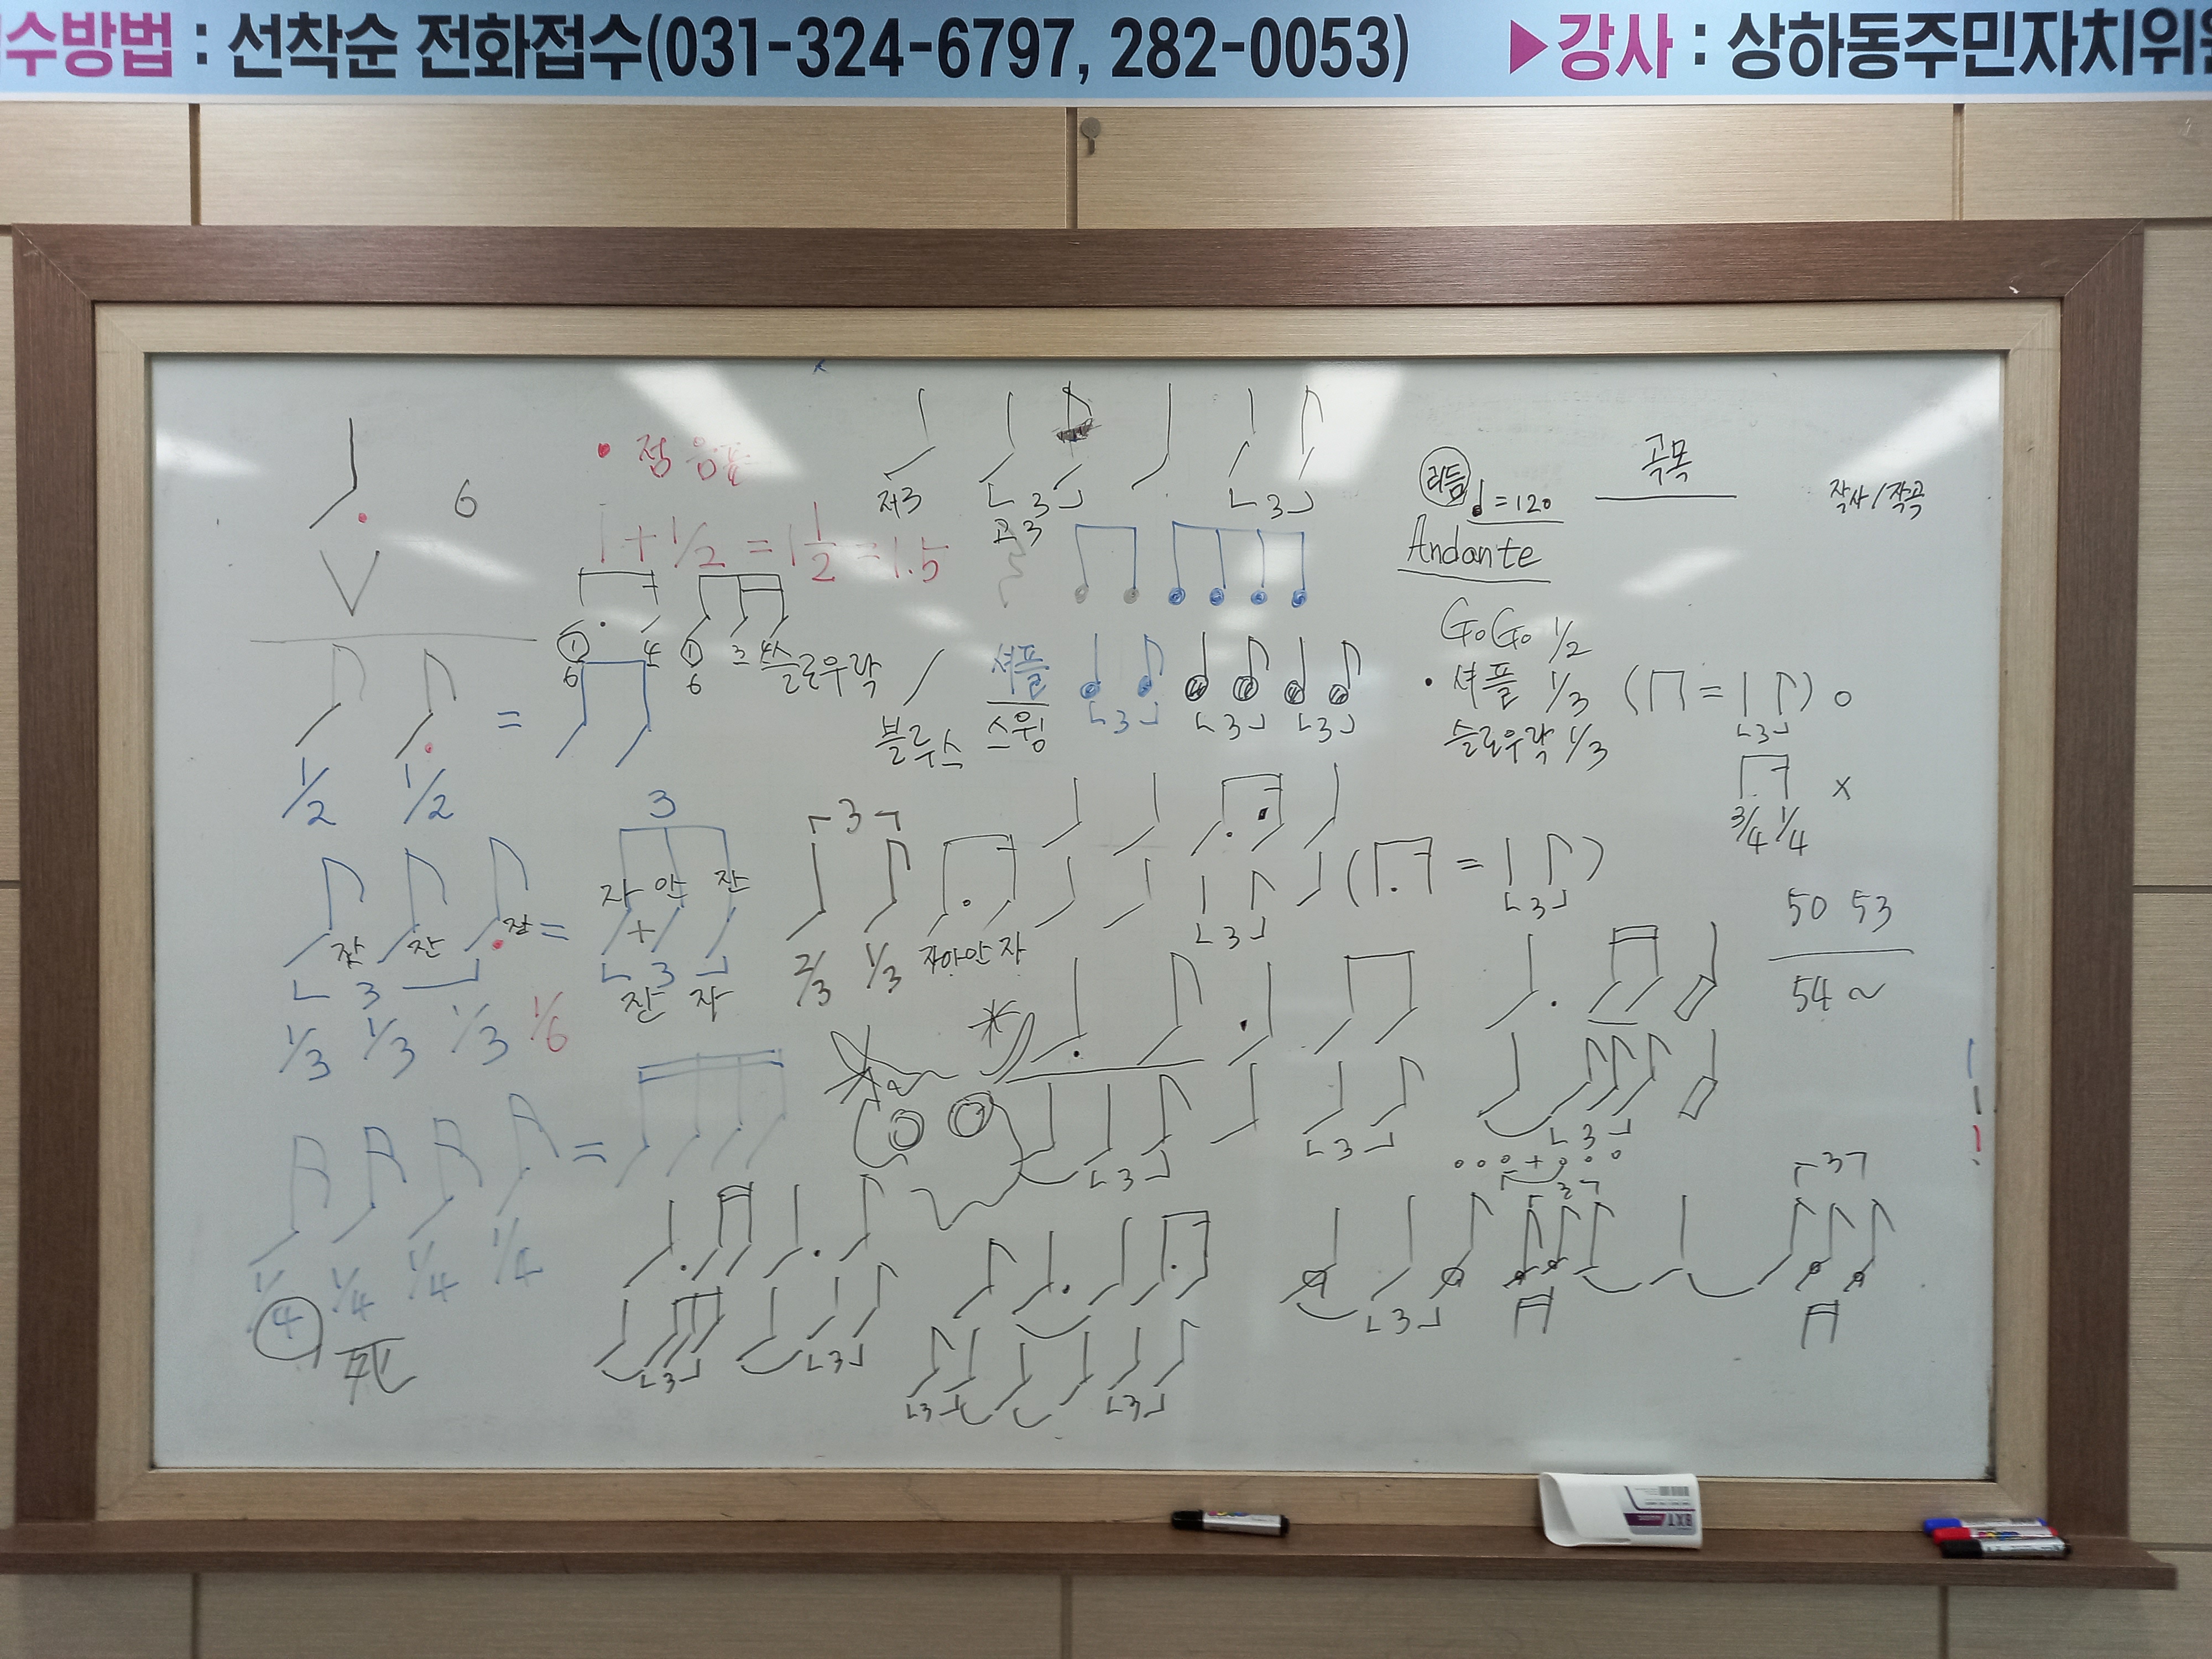 수방법 : 선착순 전화접수(031-324-6797, 282-0053) ▶강사 : 상하동주민자치위원
6
• 점음표
1 + 1/2 = 1 1/2 = 1.5
저3 3 3
고3
리듬 ♩=120
곡목
작사/작곡
Andante
GoGo 1/2
• 셔플 1/3 ( = 3 ) o
슬로우락 1/3
3/4 1/4 x
① 4 ① 3 4
6 6
슬로우락 / 블루스
셔플
스윙
3 3 3
1/2 1/2 =
잔 잔 잔 =
3
1/3 1/3 1/3 1/6
3
자 안 잔
+
3
잔 자
3
2/3 1/3
자아안자
( = 3 )
3
50 53
54 ~
=
1/4 1/4 1/4 1/4
④ 死
3 3
3 3
3
3 3
3 3 3
BXT